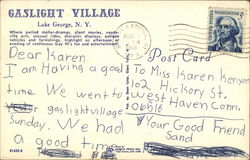 GASLIGHT VILLAGE
Lake George, N. Y.
Where period meller-dramas, silent movies, vaude-
ville acts, unusual rides, dioramic displays, antique
vehicles and furnishings, highlight an afternoon or
evening of continuous Gay 90's fun and entertainment.
Post Card
Dear Karen
I am Having a good
time. We went to
gaslight village
Sunday We had
a good time
To Miss Karen Kenyon
102 Hickory St.
West Haven Conn.
Your Good Friend
Sand